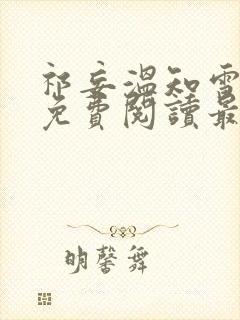 祁妄溫知雪
免費閱讀最
明馨舞